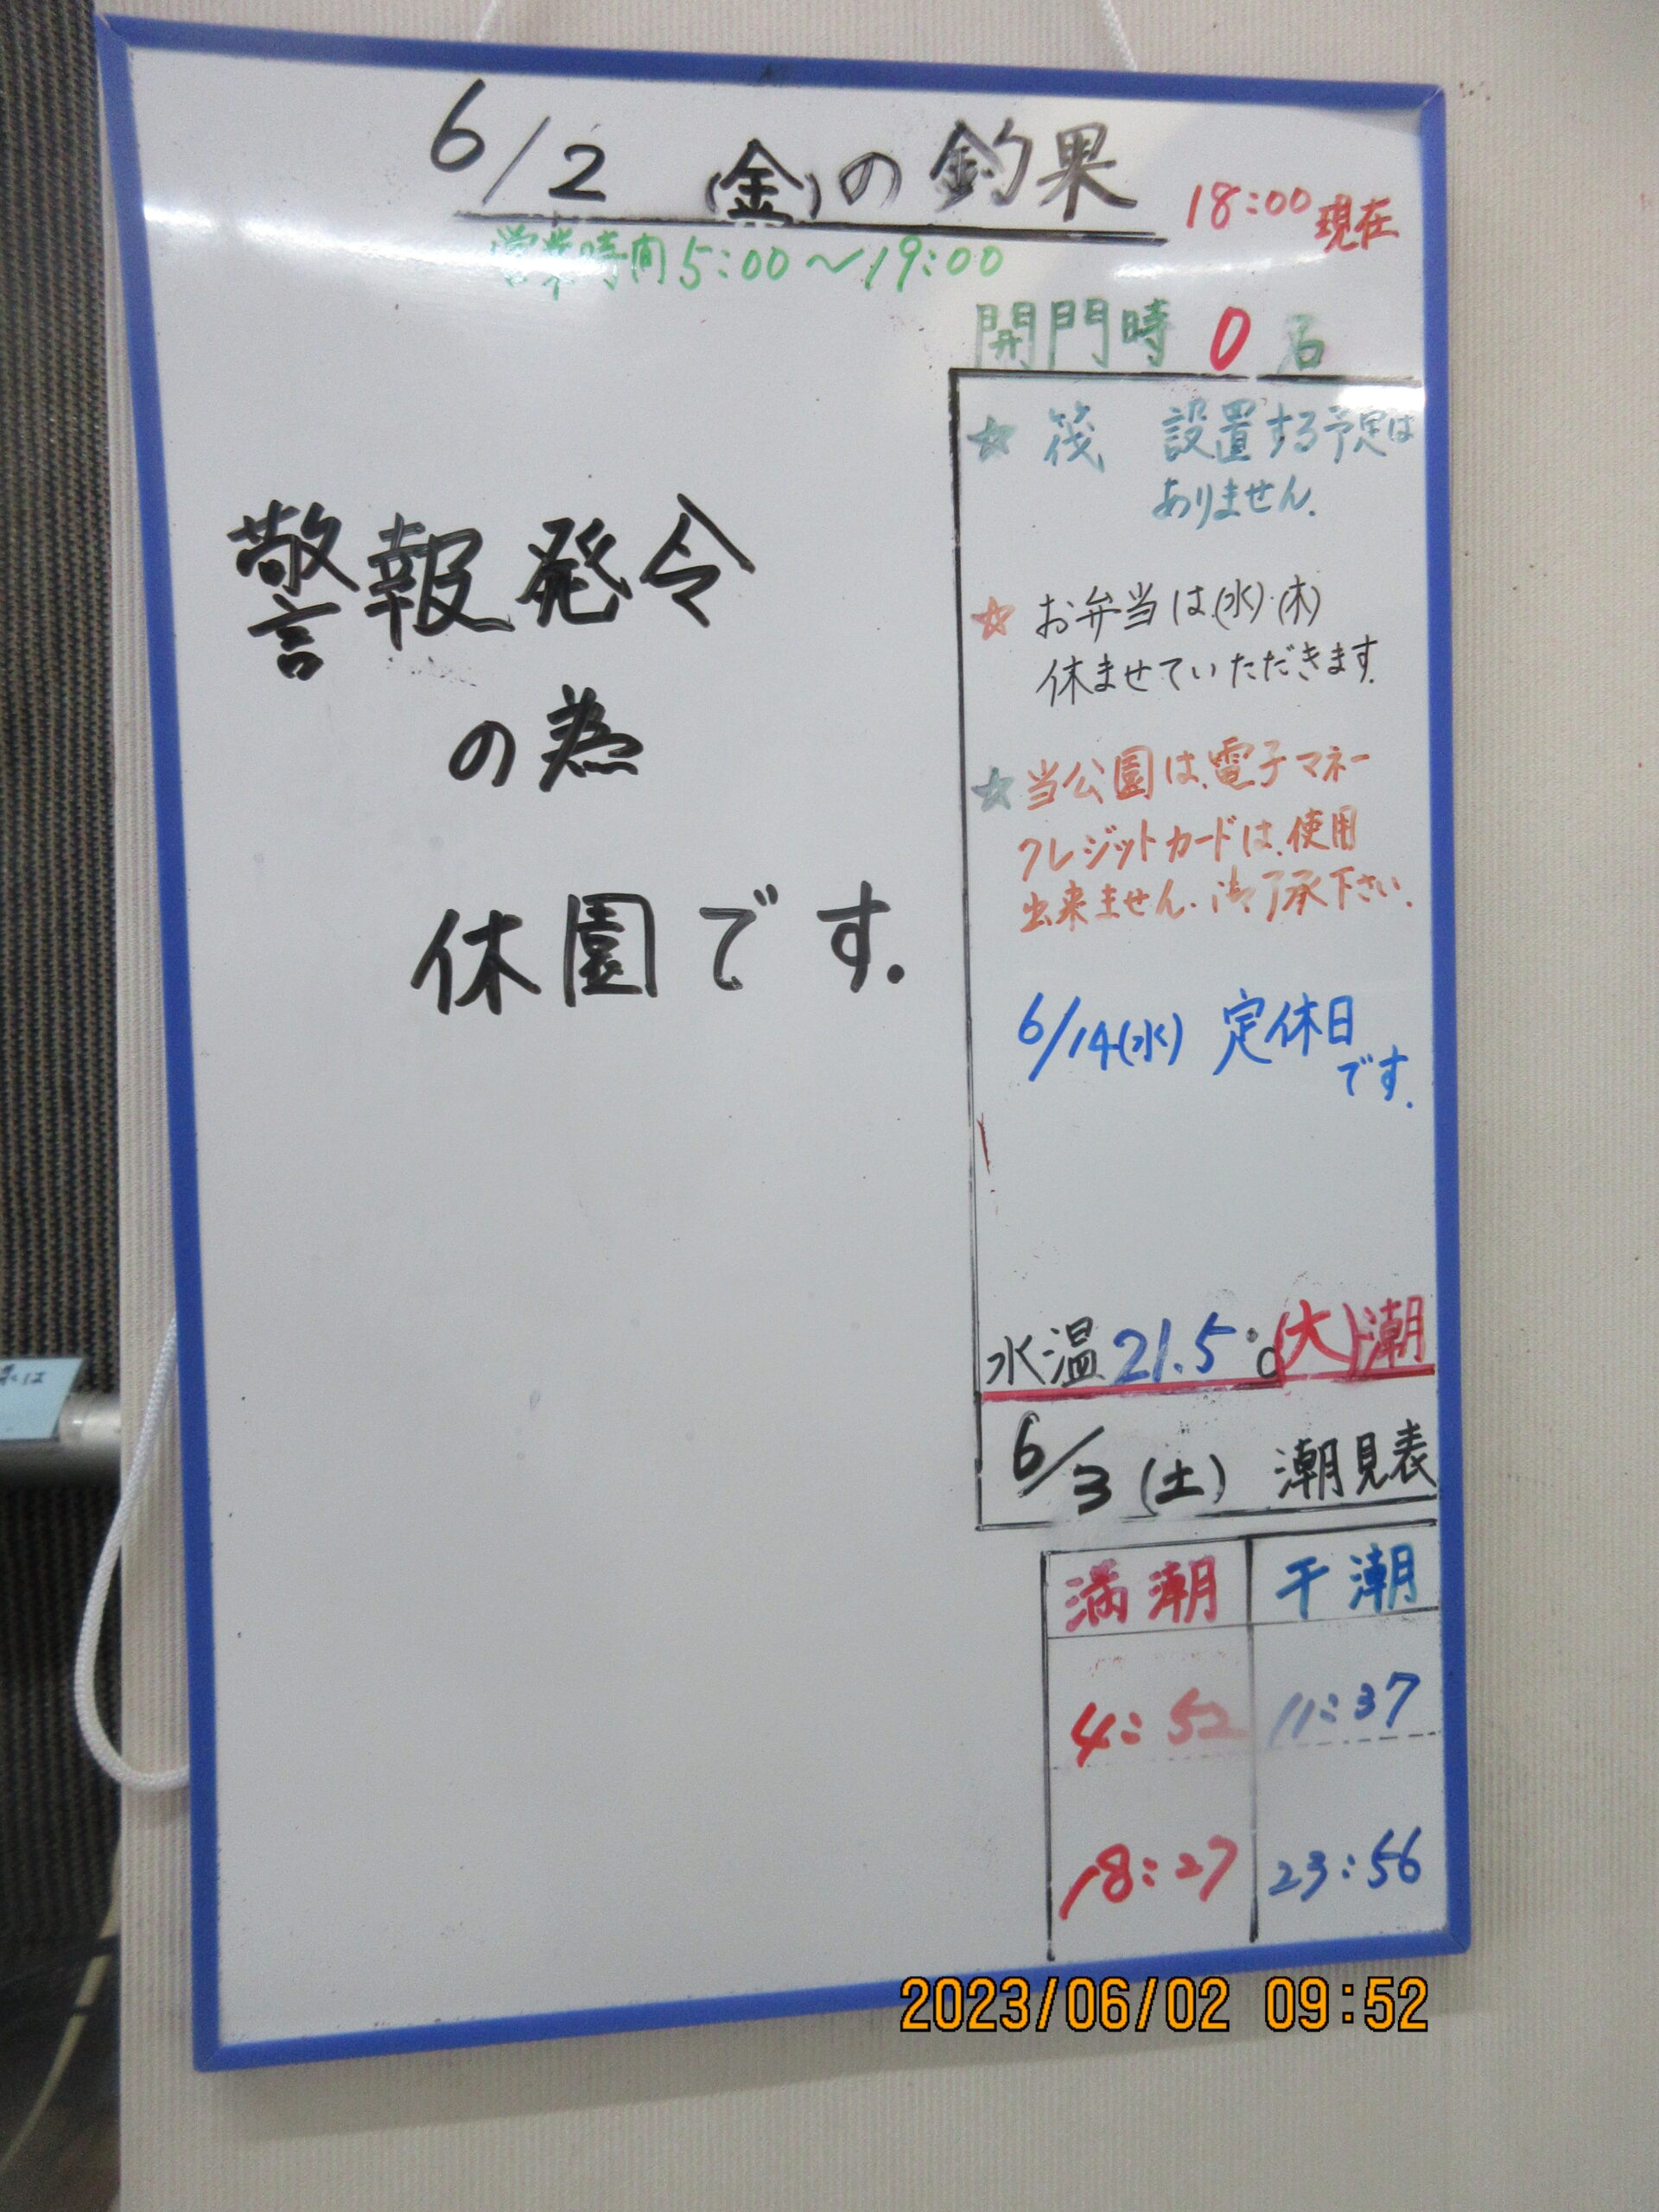 6/2 (金)の釣果
18:00現在
営業時間5:00～19:00
開門時 0 名
警報発令
の為
休園です.
☆ 筏 設置する予定は
ありません.
☆ お弁当は(水)・(木)
休ませていただきます.
☆ 当公園は、電子マネー
クレジットカードは、使用
出来ません。御了承下さい.
6/14(水) 定休日
です.
水温21.5℃(大)潮
6/3(土) 潮見表
満潮 干潮
4:52 11:37
18:27 23:56
2023/06/02 09:52